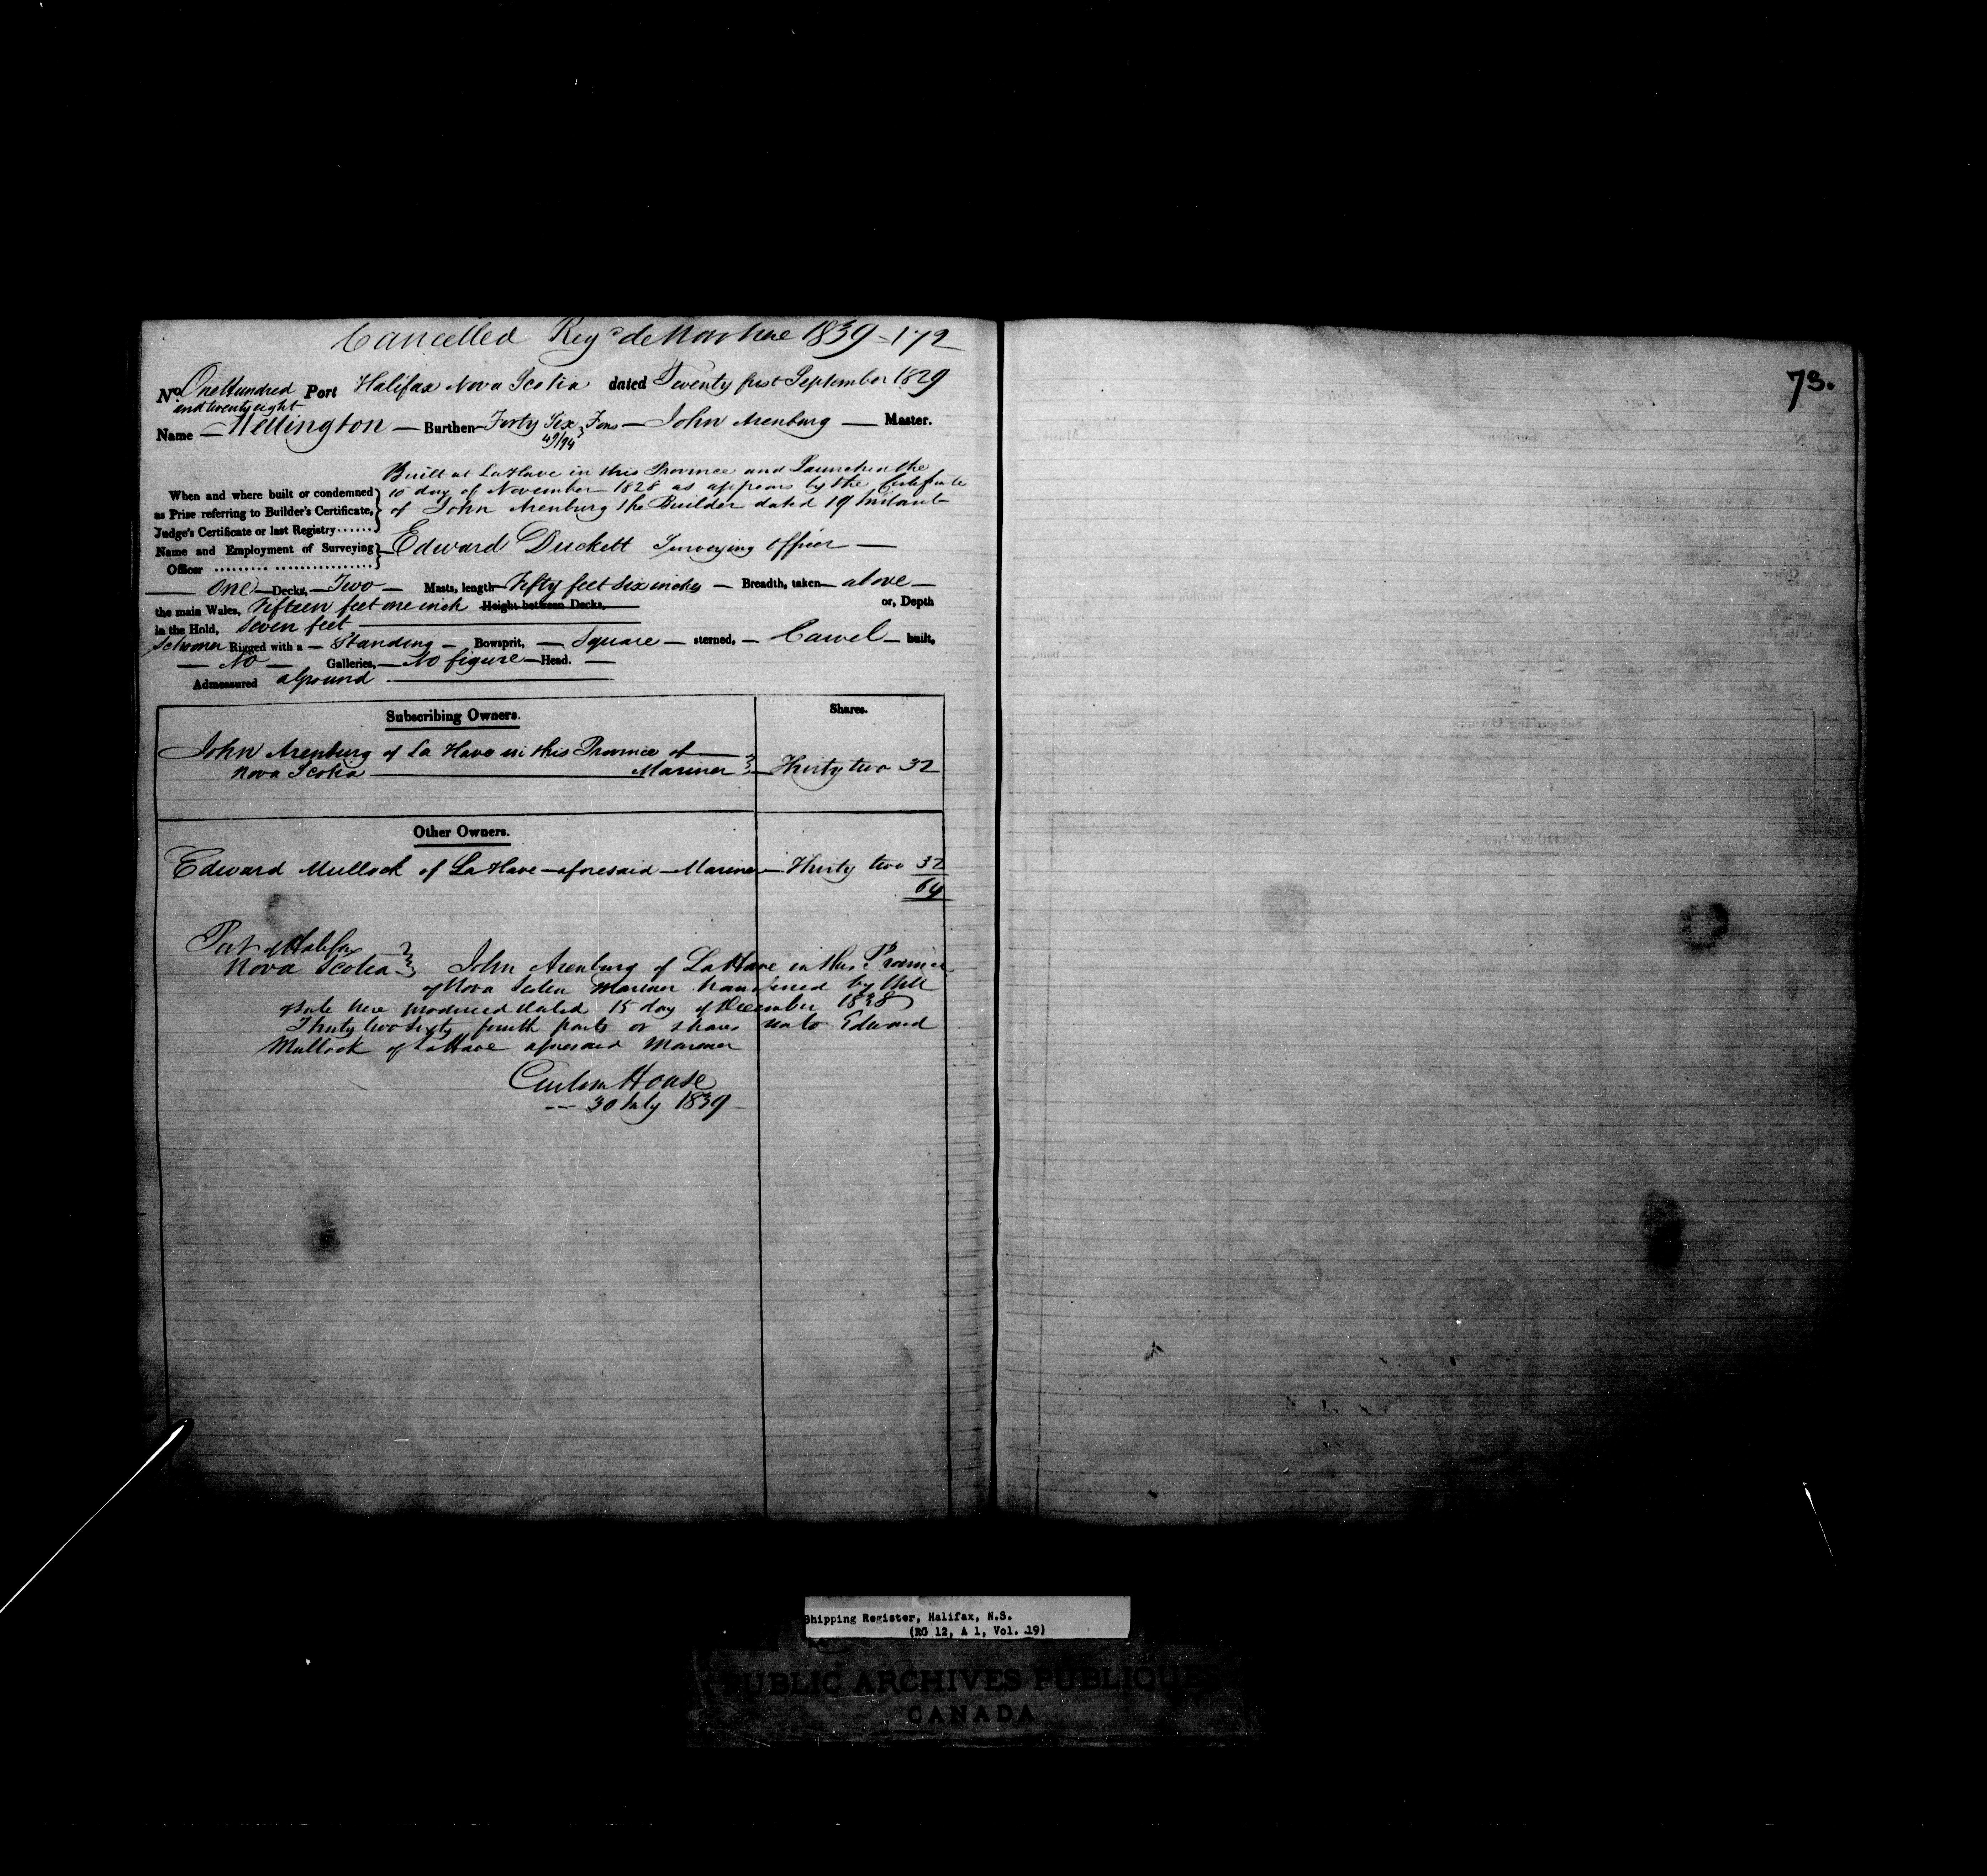 Cancelled Reg.d de Novo here 1839 - 172
73.
No. One Hundred and twenty eight Port Halifax Nova Scotia dated Twenty first September 1829
Name — Wellington — Burthen Forty Six 49/94 Tons — John Arenburg — Master.
Built at LaHave in this Province and Launched the
When and where built or condemned 10 day of November 1828 as appears by the Certificate
as Prize referring to Builder's Certificate, of John Arenburg the Builder dated 19 Instant
Judge's Certificate or last Registry
Name and Employment of Surveying Edward Duckett Surveying Officer —
Officer
— One — Decks, — Two — Masts, length Fifty feet Six inches — Breadth, taken above —
the main Wales, Fifteen feet one inch Height between Decks, or, Depth
in the Hold, Seven feet
Schooner Rigged with a — Standing — Bowsprit, — Square — sterned, — Carvel — built,
— No — Galleries, — No figure — Head. —
Admeasured aground
Subscribing Owners. Shares.
John Arenburg of La Have in this Province of
Nova Scotia — Mariner Thirty two 32
Other Owners.
Edward Mullock of LaHave aforesaid — Mariner — Thirty two 32
64
Port of Halifax
Nova Scotia John Arenburg of LaHave in this Province
of Nova Scotia Mariner transferred by Bill
of Sale here produced dated 15 day of December 1838
Thirty two Sixty fourth parts or shares unto Edward
Mullock of LaHave aforesaid Mariner
Custom House
30 July 1839
Shipping Register, Halifax, N.S.
(RG 12, A 1, Vol. 19)
PUBLIC ARCHIVES PUBLIQUES
CANADA